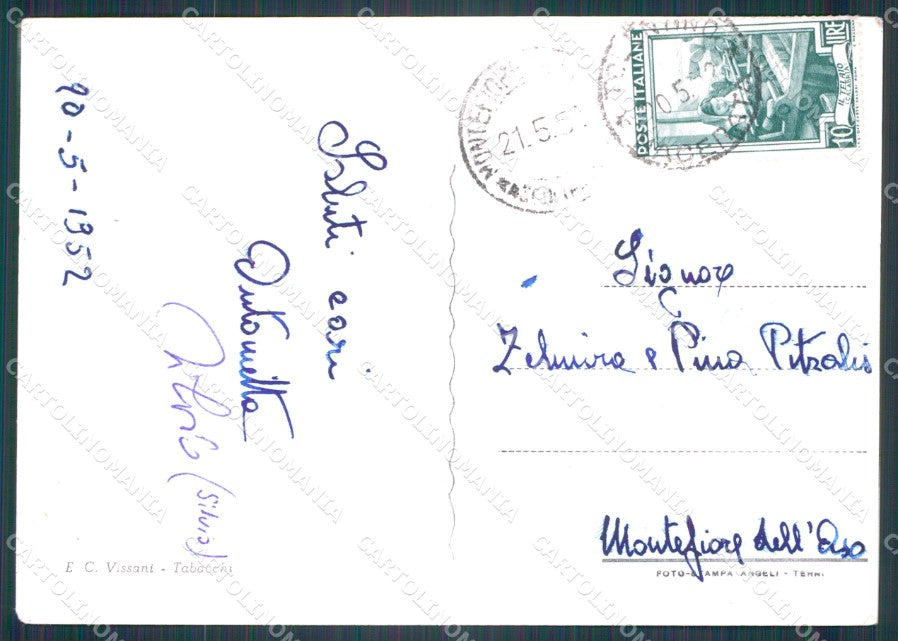 20-5-1952
Saluti cari
Antonietta
(Silvia)
E C. Vissani - Tabacchi
POSTE ITALIANE
10 LIRE
IL TELAIO
21.5.5
Zelmira e Pina Pitzalis
Montefiore dell'Aso
FOTO-STAMPA ANGELI - TERNI
CARTOLINOMANIA